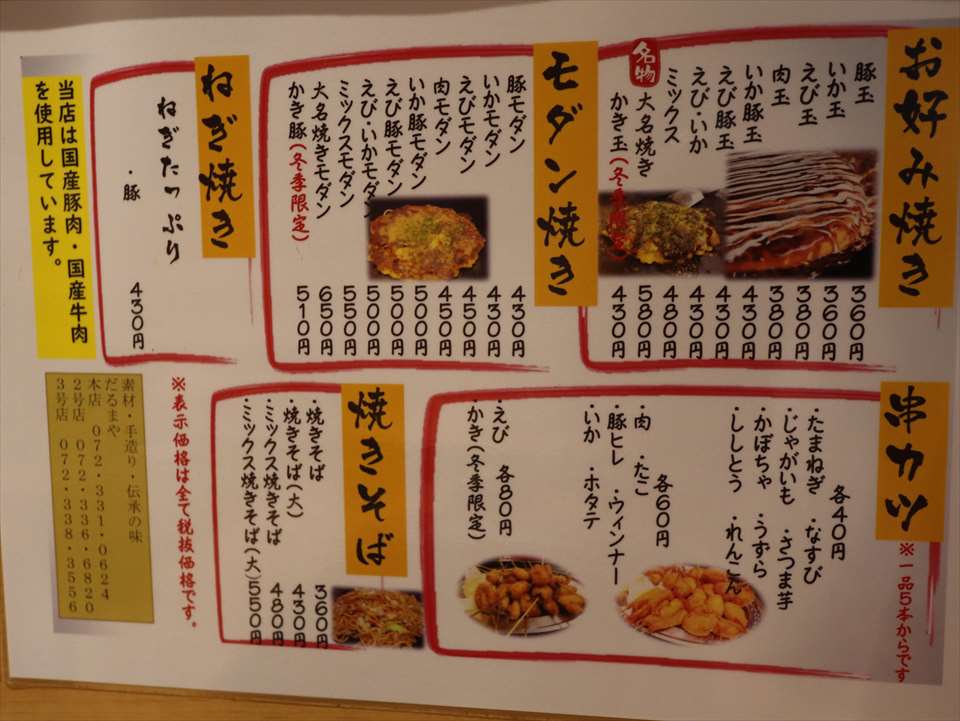 お好み焼き
豚玉 360円
いか玉 360円
えび玉 380円
肉玉 380円
いか豚玉 430円
えび豚玉 430円
えび・いか 430円
ミックス 480円
名物 大名焼き 580円
かき玉(冬季限定) 430円
モダン焼き
豚モダン 430円
いかモダン 430円
えびモダン 450円
肉モダン 450円
いか豚モダン 500円
えび豚モダン 500円
えび・いかモダン 500円
ミックスモダン 550円
大名焼きモダン 650円
かき豚(冬季限定) 510円
ねぎ焼き
ねぎたっぷり
・豚 430円
当店は国産豚肉・国産牛肉
を使用しています。
串カツ
※一品5本からです
各40円
・たまねぎ ・なすび
・じゃがいも ・さつま芋
・かぼちゃ ・うずら
・ししとう ・れんこん
各60円
・肉 ・たこ
・豚ヒレ ・ウィンナー
・いか ・ホタテ
各80円
・えび
・かき(冬季限定)
焼きそば
・焼きそば 360円
・焼きそば(大) 430円
・ミックス焼きそば 480円
・ミックス焼きそば(大) 550円
※表示価格は全て税抜価格です。
素材・手造り・伝承の味
だるまや
本店 072・331・0624
2号店 072・336・6820
3号店 072・338・3556